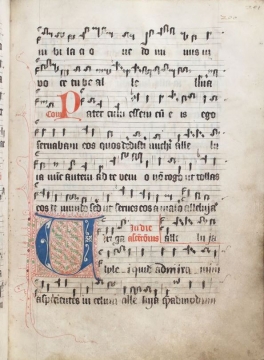 in bi la ci o ne do mi nus in
vo ce tu be al le luia
com Pater cum essem cu e is ego
seruabam eos quos dedisti michi alle lu
ia nuc autem ad te ven o no rogo ut tollas
eos de mundo sed ut serues eos a malo alleluya
In die
ascensionis alle lu ia
quid admira mini
aspicientes in celum alle luya quemadmodum